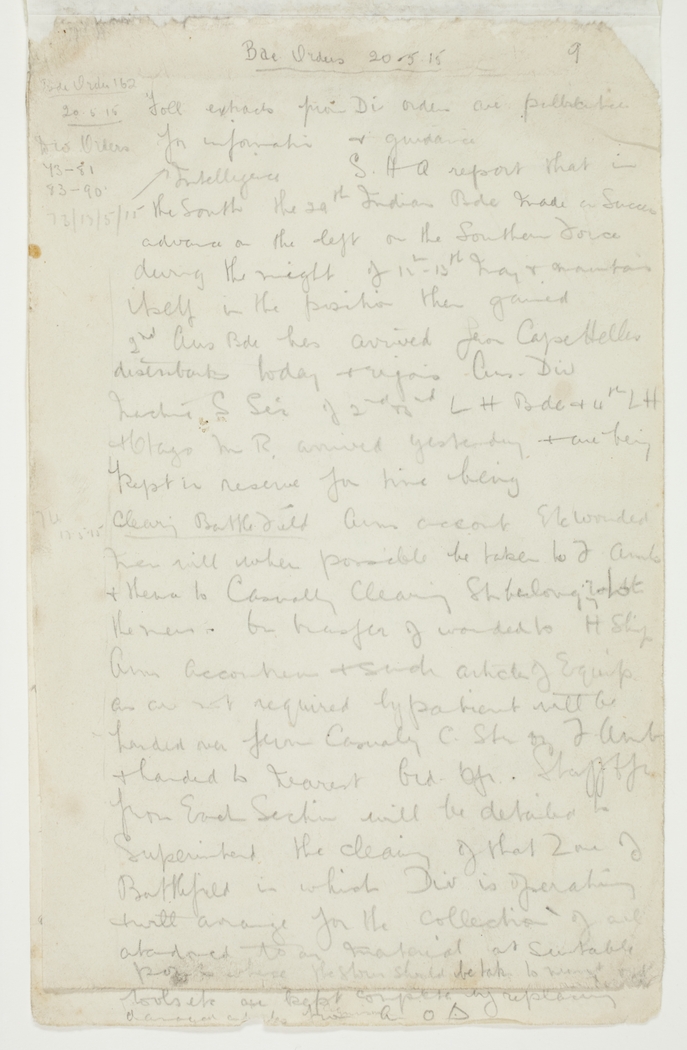 Bde Orders 20-5-15 9
Bde Order 162
20.5.15
Foll extracts from Div orders are published
Div Orders
for informatn & guidance
73-81
83-90
Intelligence S. H Q report that in
the South the 29th Indian Bde made a Success
advance on the left on the Southern Force
during the night of 12-13th May & maintain
itself in the position then gained
2nd Aus Bde has arrived from Cape Helles
disembarks today & rejoins Aus. Div
of 2nd 3rd L H Bde & 4th L H
& Otago M R. arrived yesterday & are being
kept in reserve for time being
Clearing Battlefield Arms accout Etc wounded
men will when possible be taken to F Amb
& thence to Casualty Clearing Stn belonging
the men. On transfer of wounded to H Ship
Arms accoutrem & such articles of Equip.
as are not required by patient will be
handed over from Casualty C. Stn or F Amb
& handed to nearest Ord. Ofr. Staff Ofr
from Each Section will be detailed to
Superintend the clearing of that Zone of
Battlefield in which Div is operating
& will arrange for the collection of all
abandoned material at Suitable
should be taken to
tools etc are kept complete by replacing
A O D